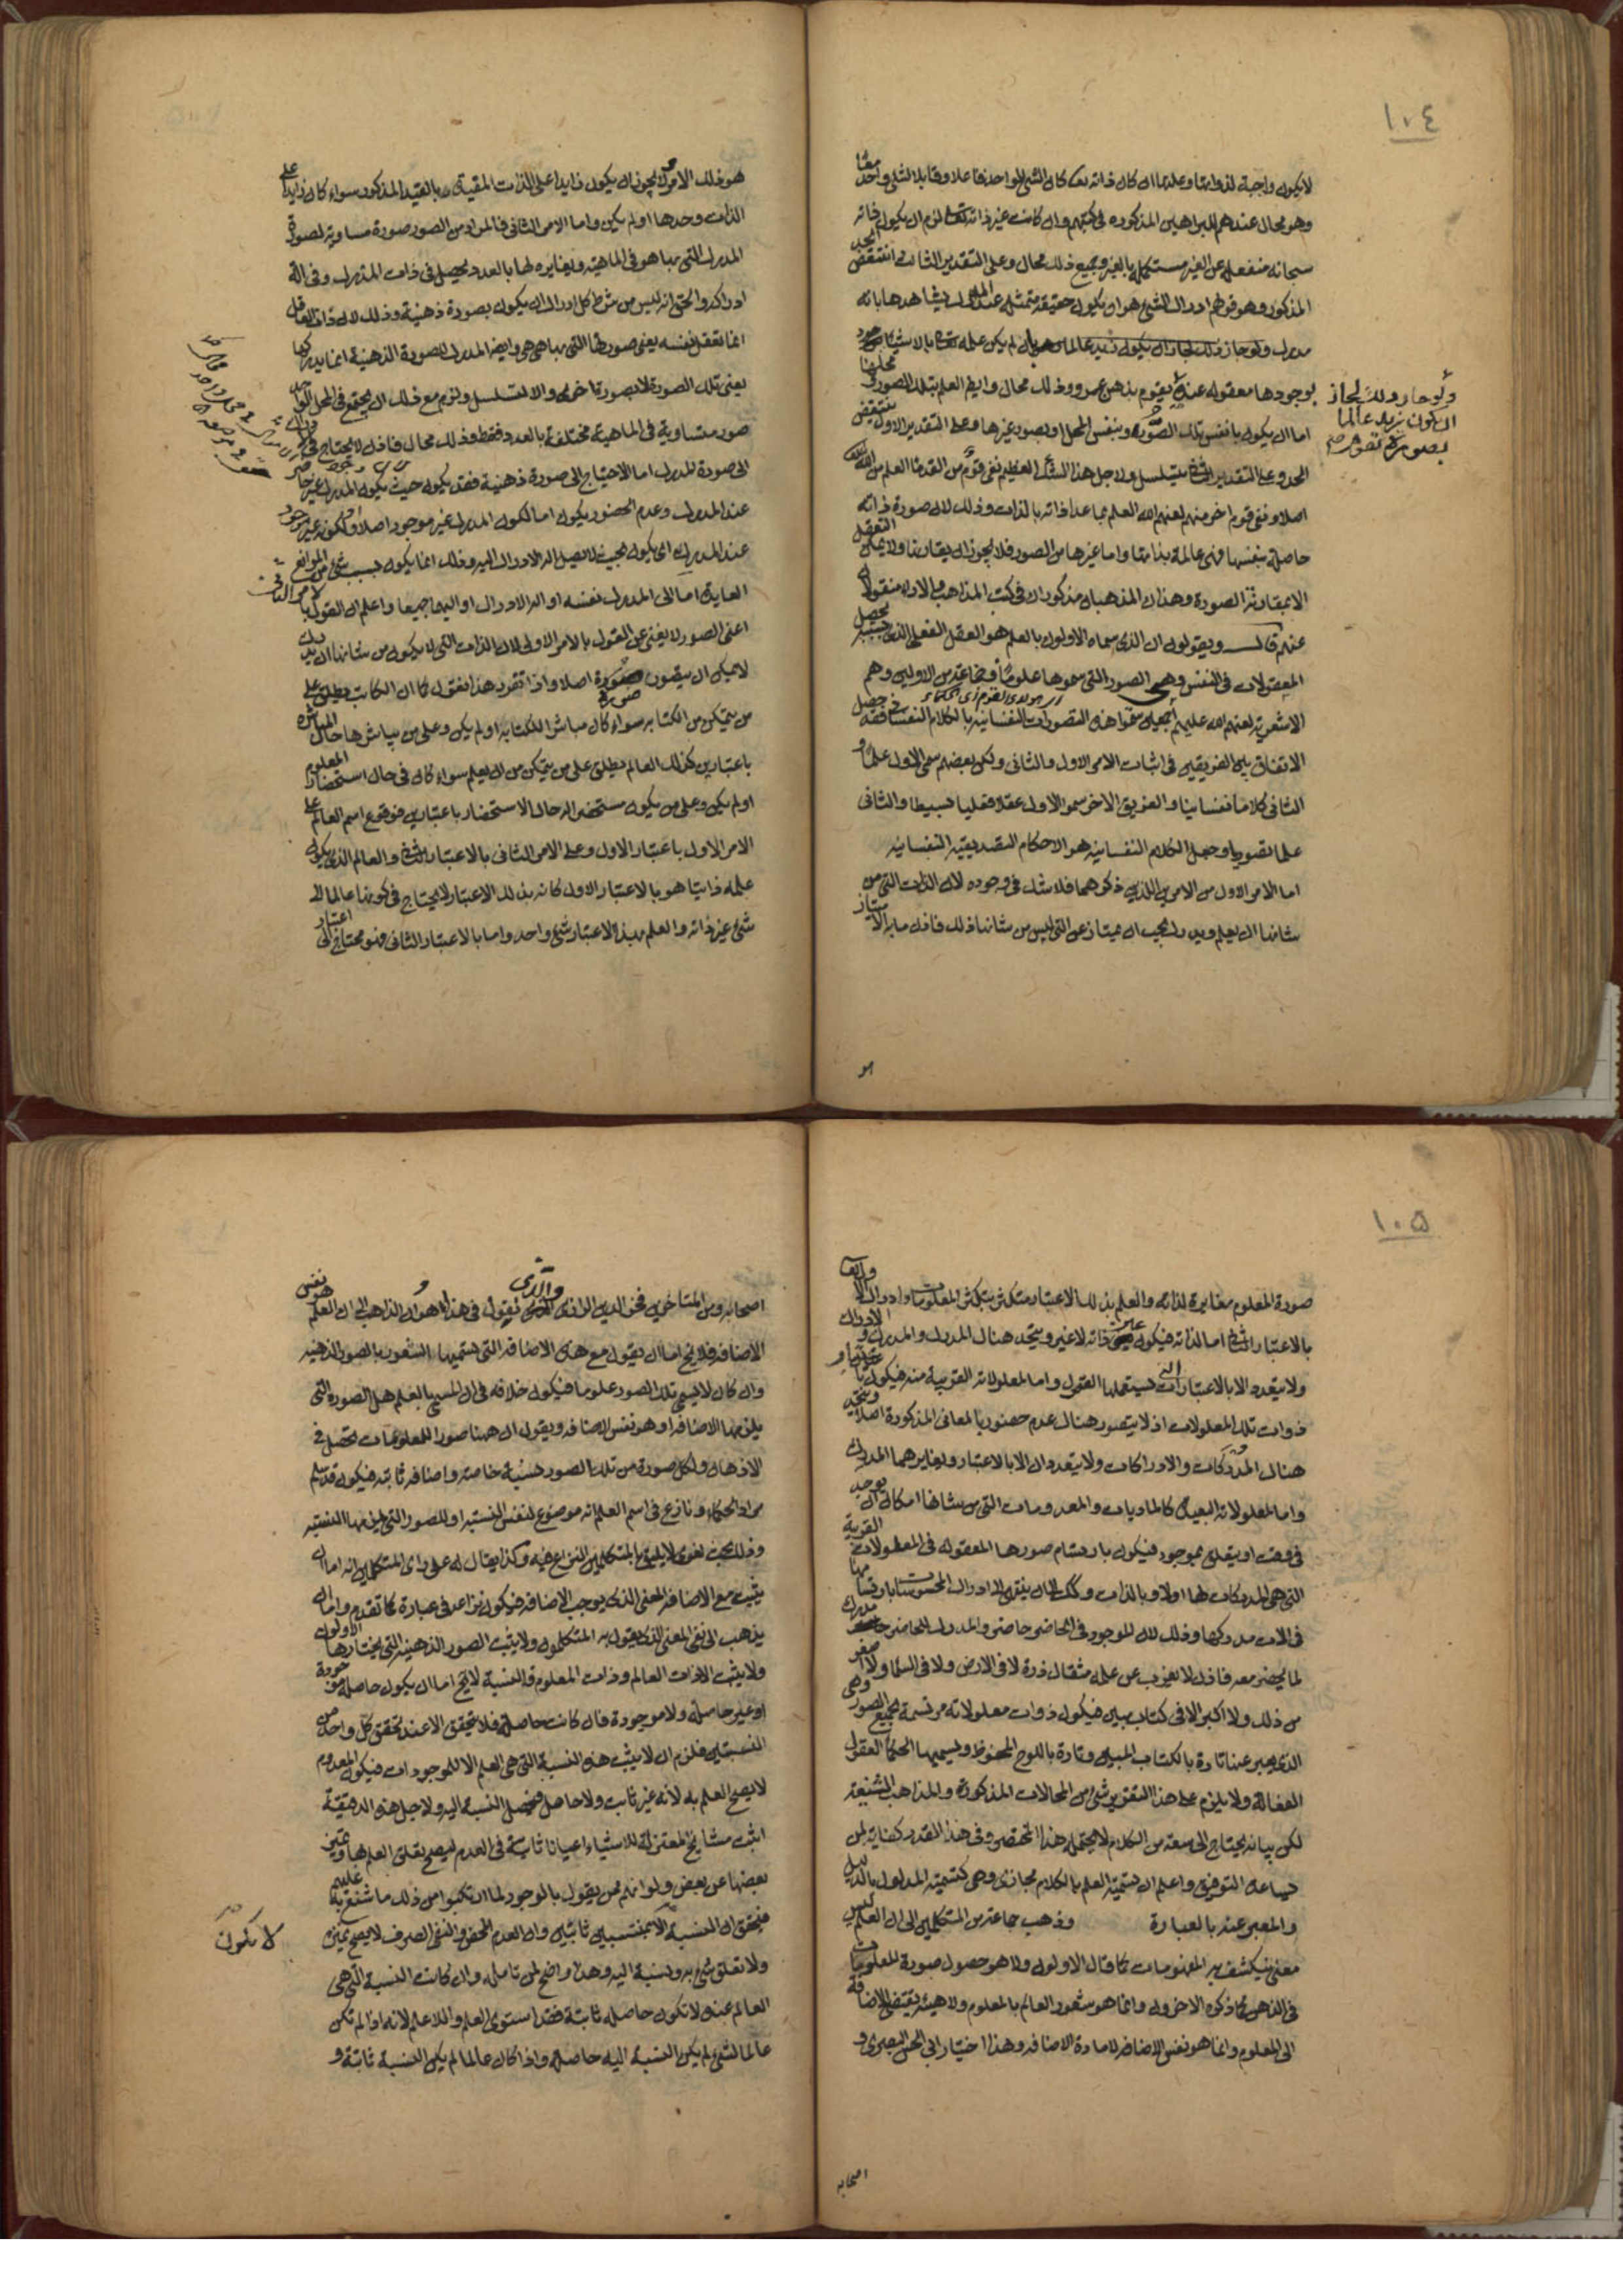 ١٠٤
لا يكون واجبة لذواتها وعلتها ان كان ذاته تعالى كان الشئ الواحد فاعلا وقابلا لشئ واحد معا
وهو محال عندهم للبراهين المذكورة في كتبهم وان كانت غير ذاته تعالى لزم ان يكون ذاته
سبحانه منفعلة عن الغير مستكملة بالغير وجميع ذلك محال وعلى التقدير الثالث انتقض الحد
المذكور وهو قولهم ادراك الشئ هو ان يكون حقيقة متمثلة عند المدرك يشاهدها ما به
يدرك ولو جاز ذلك لجاز ان يكون زيد عالما لم يكن علمه تعالى بالاشياء
ولو جاز ذلك لجاز
ان يكون زيد عالما
بصورة تقوم
بوجودها معقوله عنده يقوم بذهن عمرو وذلك محال وايضا العلم بتلك الصور ومحلها
اما ان يكون بانفس تلك الصور وبنفس المحل او بصور غيرها وعلى التقدير الاول ينتقض
الحد وعلى التقدير الثاني يتسلسل ولاجل هذا الشك العظيم نفى قوم من القدماء العلم من الله
اصلا ونفى قوم اخر منهم لعنهم الله العلم بما عدا ذاته بالذات وذلك لان صورة ذاته
حاصلة بنفسها فهي عالمة بذاتها واما غيرها من الصور فلا يجوز ان يقارنها ولا يمكن التعقل
الا بمقارنة الصورة وهذان المذهبان مذكوران في كتب المذاهب والاراء منقولان
عنهم قال ويقولون ان الذي سماه الاولون بالعلم هو العقل الفعلي الذي بسببه يحصل
المعقولات في النفس وهي الصور التي سموها علوما وجماعة من الاولين وهم
الاشعرية لعنهم الله عليهم اجمعين سموا هذه التصورات النفسانية بالكلام النفساني فقد حصل
الاتفاق بين الفريقين في اثبات الامر الاول والثاني ولكن بعضهم سمى الاول علما و
الثاني كلاما نفسانيا والفريق الاخر سموا الاول عقلا فعليا بسيطا والثاني
علما تصوريا وجعل الكلام النفسانية هو الاحكام التصديقية النفسانية
اما الامر الاول من الامرين اللذين ذكرهما فلا شك في وجوده لان الذات التي من
شانها ان يعلم ويدرك يجب ان يمتاز عن التي ليس من شانها ذلك فاذن ما به الامتياز
هو
هو ذلك الامر ولا يجوز ان يكون زايدا على الذات المقيدة بالقيد المذكور سواء كان زايدا على
الذات وحدها او لم يكن واما الامر الثاني فالمراد من الصور صورة مساوية لصورة
المدرك التي بها هو في الماهية ومغايرة لها بالعدد يحصل في ذات المدرك وفي الة
ادراكه والحق انه ليس من شرط كل ادراك ان يكون بصورة ذهنية وذلك لان ذات العاقل
انما تعقل نفسه بعين صورتها التي بها هي هي وايضا المدرك للصورة الذهنية انما يدركها
بعين تلك الصورة لا بصورة اخرى والا لتسلسل ولزم مع ذلك ان يجتمع في المحل الواحد
صور متساوية في الماهية مختلفة بالعدد فقط وذلك محال فاذن لا يحتاج في كل ادراك
الى صورة المدرك اما الاحتياج الى صورة ذهنية فقد يكون حيث يكون المدرك غير حاضر
عند المدرك وعدم الحضور يكون اما لكون المدرك غير موجود اصلا او لكونه غير موجود
عند المدرك اي يكون بحيث لا يصل اليه الادراك البتة وذلك انما يكون بسبب شئ من الموانع
العايدة اما الى المدرك نفسه او الة الادراك او اليهما جميعا واعلم ان القول بالامر الثاني
اعني الصور لا يغني عن القول بالامر الاول لان الذات التي لا يكون من شانها ان يدرك
لا يمكن ان يتصور صورة اصلا واذا تقرر هذا فنقول كما ان الكاتب يطلق على
من يتمكن من الكتابة سواء كان مباشرا للكتابة او لم يكن وعلى من يباشرها حال المباشرة
باعتبارين كذلك العالم يطلق على من يتمكن من ان يعلم سواء كان في حال استحضار المعلوم
او لم يكن وعلى من يكون مستحضرا له حال الاستحضار باعتبارين فوقوع اسم العالم على
الامر الاول باعتبار الاول وعلى الامر الثاني بالاعتبار الثاني والعالم الذي يكون
علمه ذاتيا هو بالاعتبار الاول كانه بذلك الاعتبار لا يحتاج في كونه عالما الى
شئ غير ذاته والعلم بهذا الاعتبار شئ واحد واما بالاعتبار الثاني فهو محتاج الى اعتبار
١٠٥
صورة المعلوم مغايرة لذاته والعلم بذلك الاعتبار متكثر بتكثر المعلومات وادراك الاول تعالى
بالاعتبار الثاني اما لذاته فيكون بعين ذاته لا غير ويتحد هناك المدرك والمدرك والادراك
ولا يتعدد الا بالاعتبارات التي يستعملها العقول واما لمعلولاته القريبة منه فيكون باعيان
ذوات تلك المعلولات اذ لا يتصور هناك عدم حضور بالمعاني المذكورة اصلا ويتحد
هناك المدركات والادراكات ولا يتعددان الا بالاعتبار ويغايرهما المدرك
واما لمعلولاته البعيدة كالماديات والمعدومات التي من شانها امكان ان يوجد
في وقت او يتعلق بموجود فيكون بارتسام صورها المعقولة في المعلولات القريبة
التي هي المدركات لها اولا وبالذات وكذلك الى ان ينتهي الى ادراك المحسوسات بارتسامها
في الات مدركها وذلك لان الموجود في الحاضر حاضر والمدرك للحاضر مدرك
لما يحضر معه فاذن لا يعزب عن علمه مثقال ذرة لا في الارض ولا في السماء ولا اصغر
من ذلك ولا اكبر الا في كتاب مبين فيكون ذوات معلولاته مرتسمة بجميع الصور وهي
الذي يعبر عنها تارة بالكتاب المبين وتارة باللوح المحفوظ ويسميها الحكماء العقول
الفعالة ولا يلزم على هذا التقدير شئ من المحالات المذكورة والمذاهب الشنيعة
لكن بيانه يحتاج الى سعة من الكلام لا يحتمله هذا المختصر وفي هذا القدر كفاية لمن
ساعده التوفيق واعلم ان تسمية العلم بالكلام مجازي وهي كتسمية المدلول بالدليل
والمعبر عنه بالعبارة وذهب جماعة من المتكلمين الى ان العلم ليس
معنى ينكشف به المفهومات كما قال الاولون ولا هو حصول صورة المعلومات
في الذهن كما ذكره الاخرون وانما هو شعور العالم بالمعلوم ولا هيئة يقتضي الاضافة
الى المعلوم وانما هو نفس الاضافة لا مادة الاضافة وهذا اختيار ابي الحسين البصري و
اصحابه
اصحابه ومن المتاخرين فخر الدين الرازي والذي نقول في هذا هو ان الذاهب الى ان العلم هو نفس
الاضافة فلا يخ اما ان يقول مع هذه الاضافة التي يسميها الشعور بالصور الذهنية
وان كان لا يسمي تلك الصور علوما فيكون خلافه في ان المسمى بالعلم هل الصورة التي
يلزمها الاضافة او هو نفس الاضافة ويقول ان ههنا صور المعلومات تحصل في
الاذهان ولكل صورة من تلك الصور هيئة خاصة واضافة ثابتة فيكون قد سلم
مراد الحكماء ونازع في اسم العلم انه موضوع لنفس النسبة او للصور التي يلزمها النسبة
وذلك بحث لغوي لا يليق بالمتكلمين النزاع فيه وكذا يقال له على راي المتكلمين انه اما ان
يثبت مع الاضافة المعنى الذي يوجب الاضافة فيكون نزاعه في عبارة كما تقدم واما ان
يذهب الى نفي المعنى الذي يقول به المتكلمون ولا يثبت الصور الذهنية التي يختارها الاولون
ولا يثبت الا ذات العالم وذات المعلوم والنسبة لا يخ اما ان يكون حاصلة موجودة
او غير حاصلة ولا موجودة فان كانت حاصلة فلا يتحقق الا عند تحقق كل واحد من
النسبتين فلزم ان لا يثبت هذه النسبة التي هي العلم الا للموجودات فيكون المعدوم
لا يصح العلم به لانه غير ثابت ولا حاصل فتحصل النسبة اليه ولاجل هذه الدقيقة
اثبت مشايخ المعتزلة للاشياء اعيانا ثابتة في العدم ليصح تعلق العلم بها وتميز
بعضها عن بعض ولو انهم ممن يقول بالوجود لما ارتكبوا من ذلك ما شنع به عليهم
فيتحقق ان النسبة الا بمنتسبين ثابتين وان العدم المحض والنفي الصرف لا يصح تميزه
لا يكون
ولا تعلق شئ به ونسبة اليه وهذا واضح لمن تامله وان كانت النسبة التي هي
العالم عنده لا تكون حاصلة ثابتة فقد استوى العلم واللاعلم لانه اذا لم تكن
عالما لشئ لم يكن النسبة اليه حاصلة واذا كان عالما لم يكن النسبة ثابتة و